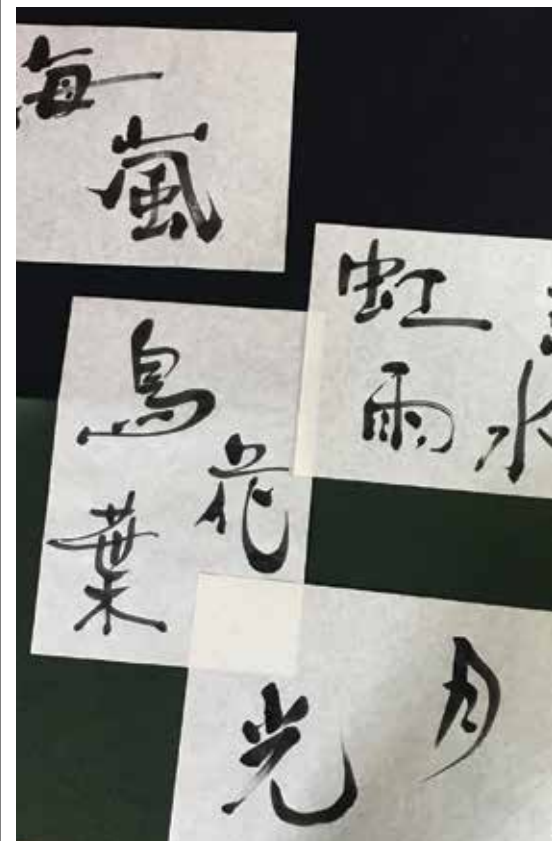 海
嵐
虹
雨
水
鳥
花
葉
月
光